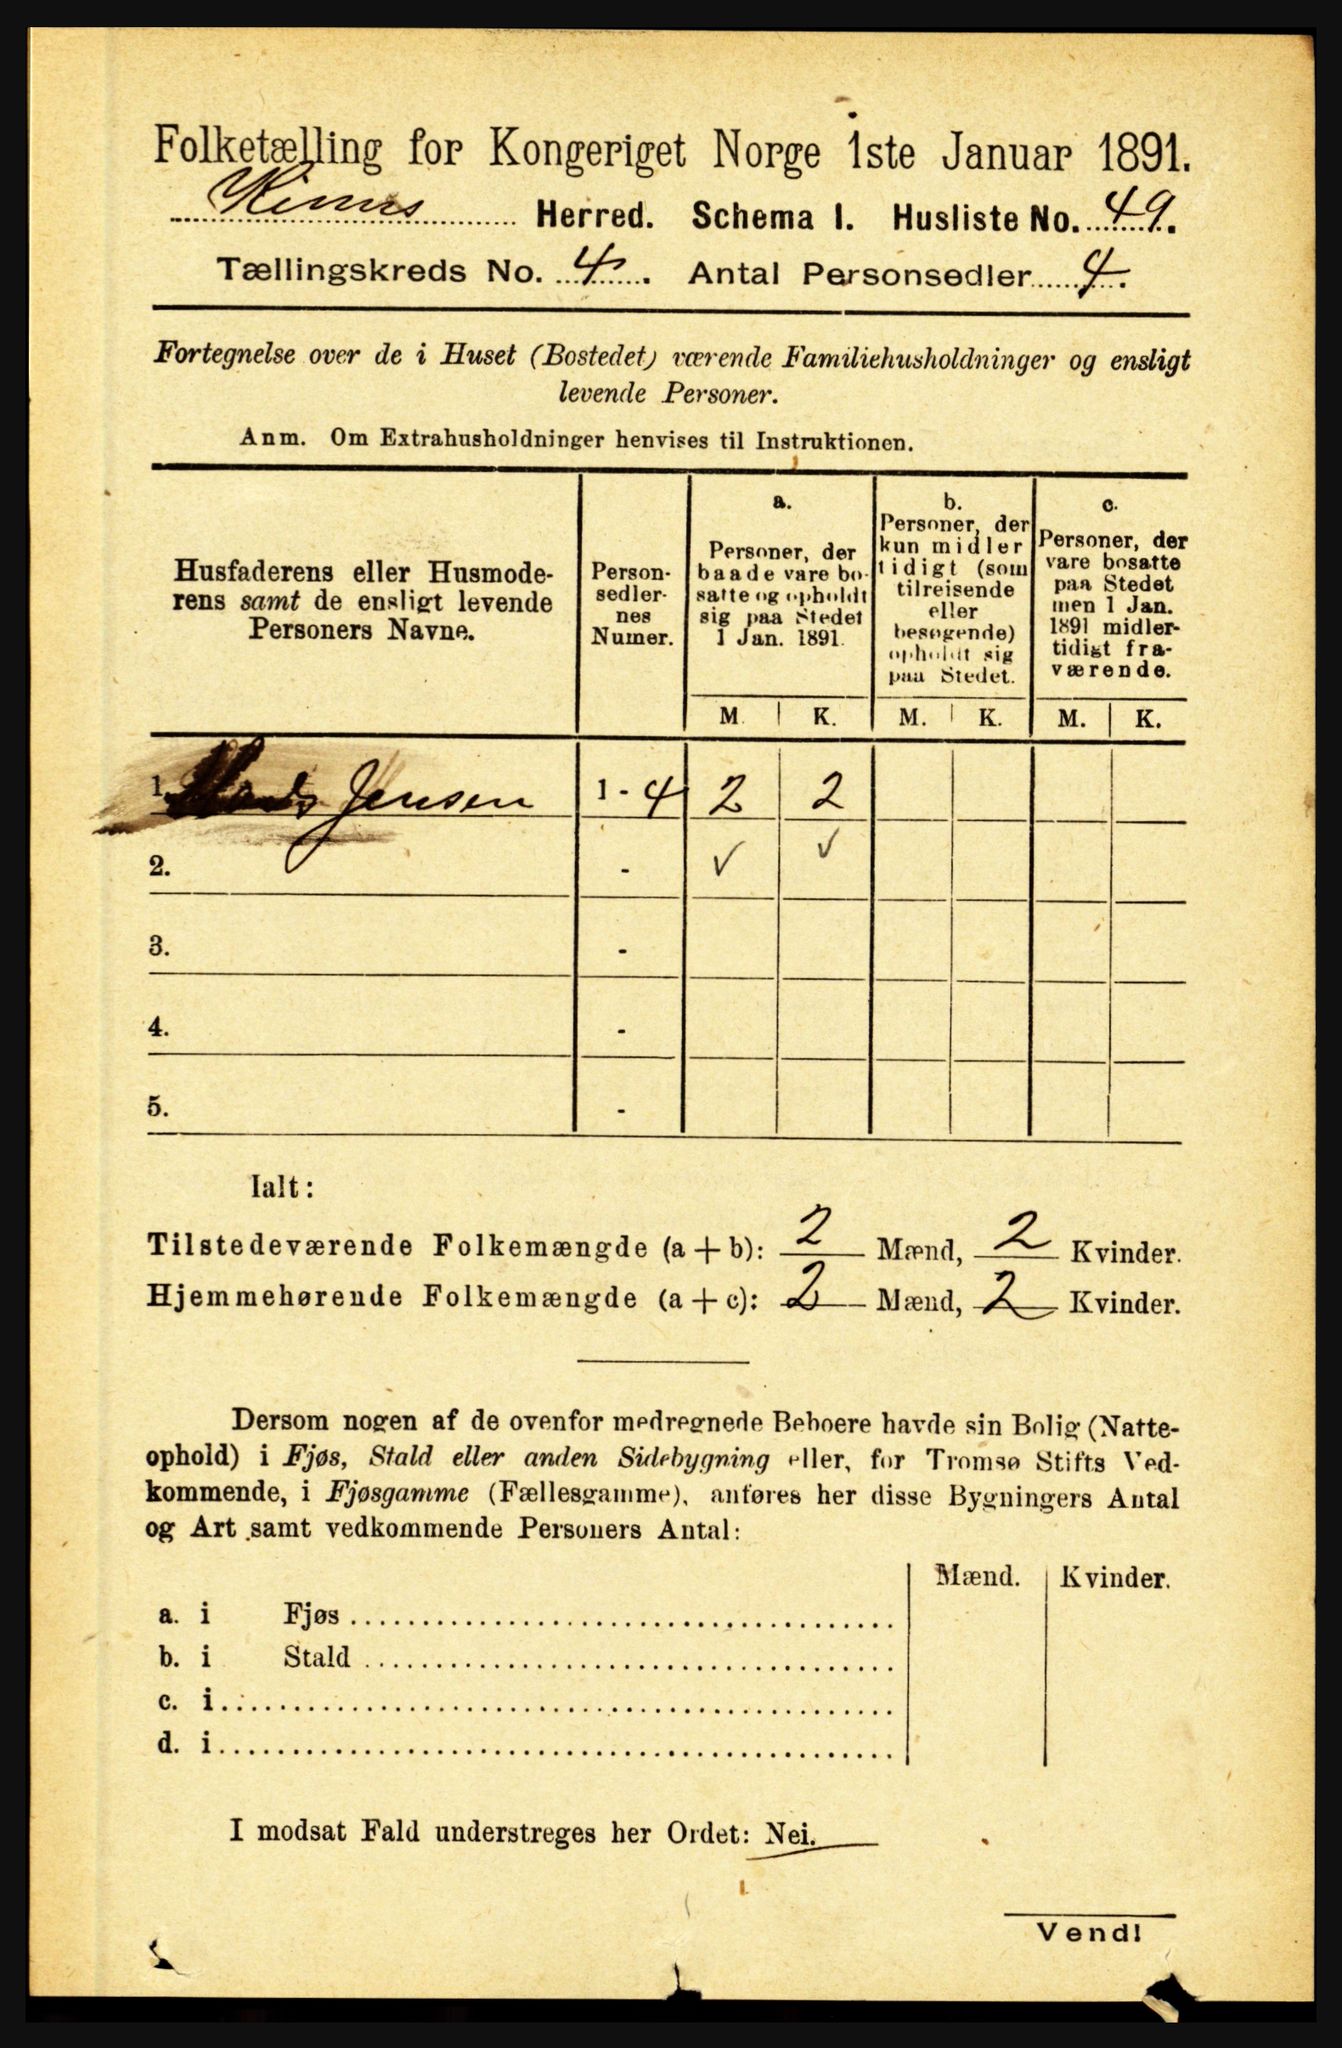 Folketælling for Kongeriget Norge 1ste Januar 1891.
Kinns Herred. Schema I. Husliste No. 49.
Tællingskreds No. 4. Antal Personsedler 4.
Fortegnelse over de i Huset (Bostedet) værende Familiehusholdninger og ensligt
levende Personer.
Anm. Om Extrahusholdninger henvises til Instruktionen.
Husfaderens eller Husmode-
rens samt de ensligt levende
Personers Navne.
Person-
sedler-
nes
Numer.
a.
Personer, der
baade vare bo-
satte og opholdt
sig paa Stedet
1 Jan. 1891.
b.
Personer, der
kun midler
tidigt (som
tilreisende
eller
besøgende)
opholdt sig
paa Stedet.
c.
Personer, der
vare bosatte
paa Stedet
men 1 Jan.
1891 midler-
tidigt fra-
værende.
M. K. M. K. M. K.
1. Mads Jensen 1 - 4 2 2
2. - ✓ ✓
3. -
4. -
5. -
Ialt:
Tilstedeværende Folkemængde (a + b): 2 Mænd, 2 Kvinder.
Hjemmehørende Folkemængde (a + c): 2 Mænd, 2 Kvinder.
Dersom nogen af de ovenfor medregnede Beboere havde sin Bolig (Natte-
ophold) i Fjøs, Stald eller anden Sidebygning eller, for Tromsø Stifts Ved-
kommende, i Fjøsgamme (Fællesgamme), anføres her disse Bygningers Antal
og Art samt vedkommende Personers Antal:
Mænd. Kvinder.
a. i Fjøs
b. i Stald
c. i
d. i
I modsat Fald understreges her Ordet: Nei.
Vend!